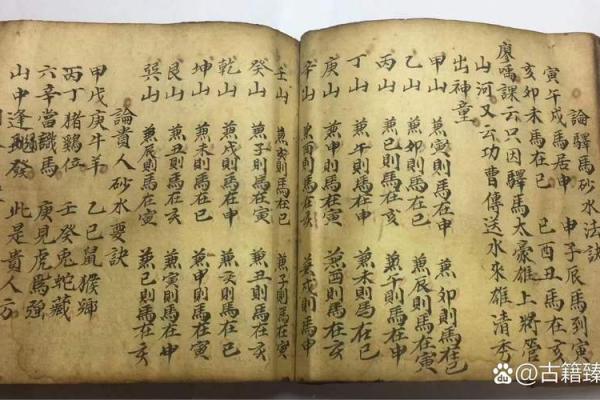 論驛馬砂水法訣
寅午戌馬居申 申子辰馬到寅
亥卯未馬在巳 巳酉丑馬在亥
廖瑀課云只因驛馬太豪雄上將管
山河又云功曹傳送水來雄清秀
出神童
甲山 兼寅則馬在申 兼卯則馬在巳
乙山 兼卯則馬在巳 兼辰則馬在寅
丙山 兼巳則馬在亥 兼午則馬在申
丁山 兼午則馬在申 兼未則馬在巳
庚山 兼申則馬在寅 兼酉則馬在亥
辛山 兼酉則馬在亥 兼戌則馬在申
壬山 兼亥則馬在巳 兼子則馬在寅
癸山 兼子則馬在寅 兼丑則馬在亥
乾山 兼戌則馬在申 兼亥則馬在巳
坤山 兼未則馬在巳 兼申則馬在寅
艮山 兼丑則馬在亥 兼寅則馬在申
巽山 兼辰則馬在寅 兼巳則馬在亥
論貴人砂水要訣
甲戊庚牛羊 乙己鼠猴鄉
丙丁猪鷄位 壬癸兔蛇藏
六辛當識馬 庚見虎馬強
山中逢發 此是貴人方
@古籍臻